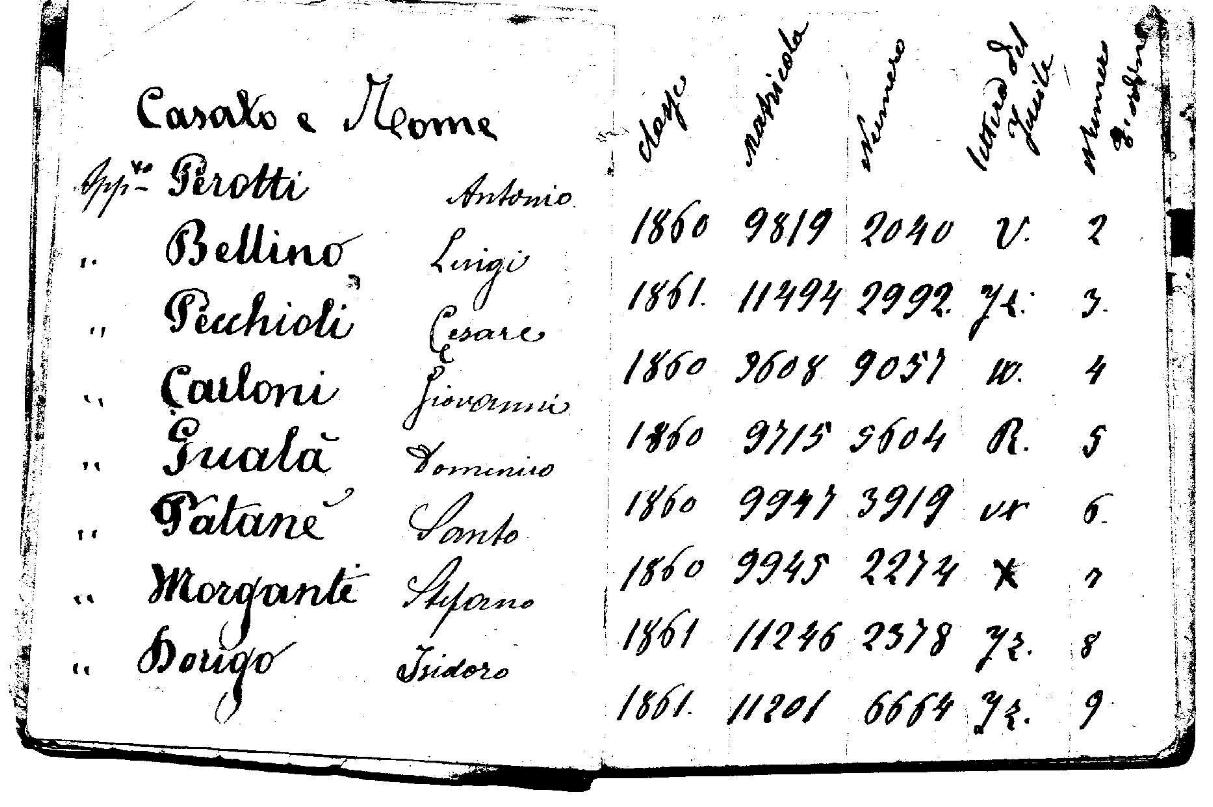 Casato e Nome classe matricola Numero lettera del fucile Numero d'ordine
App.to Perotti Antonio 1860 9819 2040 V. 2
" Bellino Luigi 1861. 11494 2992. 3.
" Pecchioli Cesare 1860 9608 9057 W. 4
" Carloni Giovanni 1860 9715 5604 R. 5
" Gualà Domenico 1860 9947 3919 6.
" Patanè Santo 1860 9945 2274 X 7
" Morgante Stefano 1861 11246 2378 8
" Dorigo Isidoro 1861. 11201 6664 9